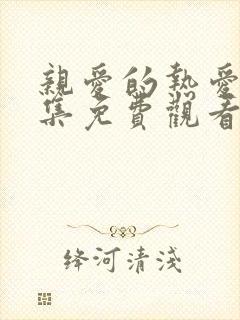 親愛的熱愛
集免費觀看
绛河清淺